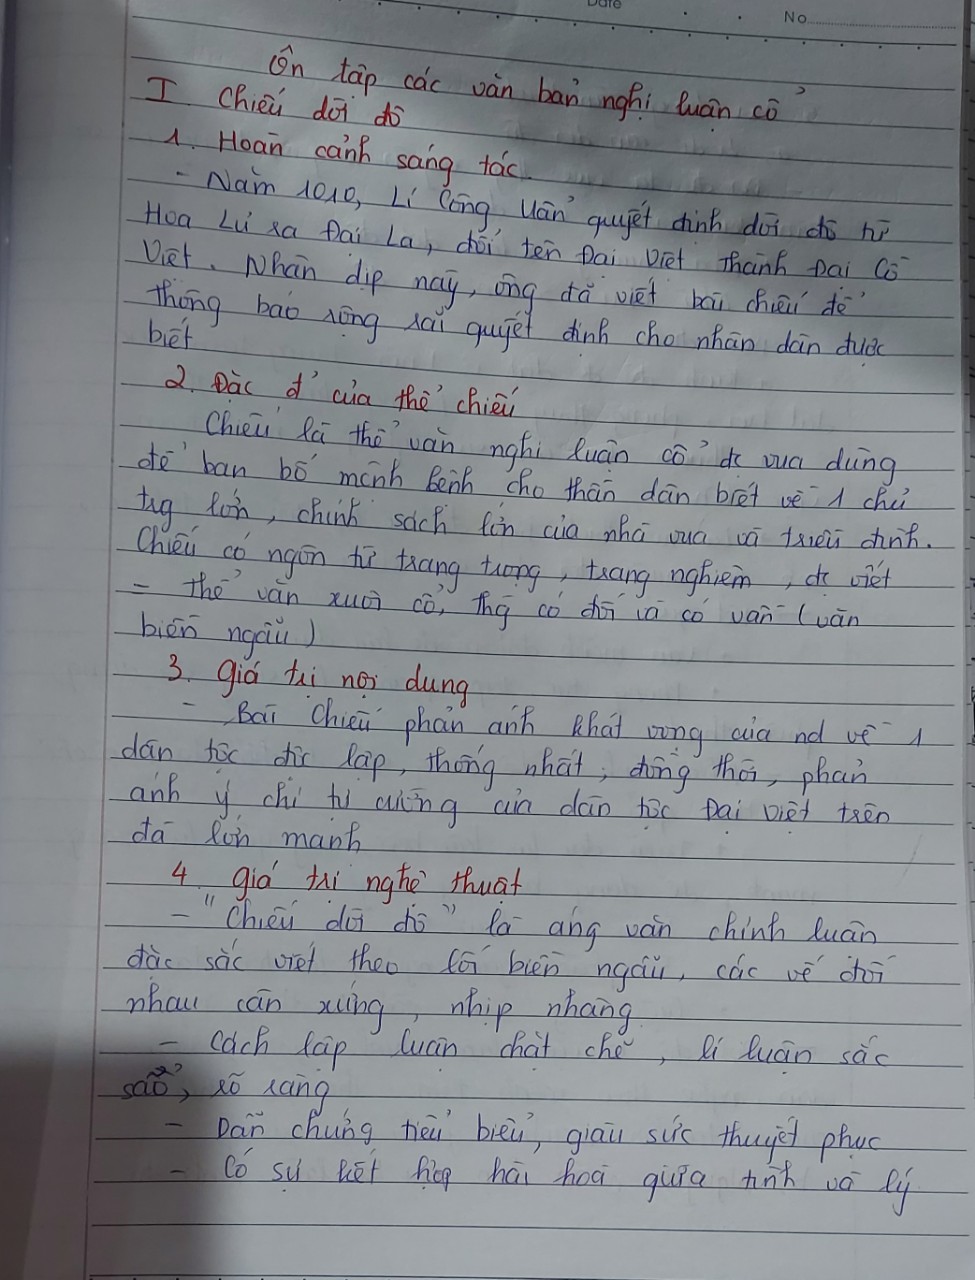 Date
No
Ôn tập các văn bản nghị luận cổ
I. Chiếu dời đô
1. Hoàn cảnh sáng tác.
- Năm 1010, Lí Công Uẩn quyết định dời đô từ
Hoa Lư ra Đại La, đổi tên Đại Việt thành Đại Cồ
Việt. Nhân dịp này, ông đã viết bài chiếu để
thông báo rộng rãi quyết định cho nhân dân được
biết
2. Đặc đ' của thể chiếu
Chiếu là thể văn nghị luận cổ đc vua dùng
để ban bố mệnh lệnh cho thần dân biết về 1 chủ
trg lớn, chính sách lớn của nhà vua và triều đình.
Chiếu có ngôn từ trang trọng, trang nghiêm, đc viết
= thể văn xuôi cổ, thg có đối và có vần (văn
biền ngẫu)
3. giá trị nội dung
- Bài Chiếu phản ánh khát vọng của nd về 1
dân tộc độc lập, thống nhất, đồng thời, phản
ánh ý chí tự cường của dân tộc Đại Việt trên
đà lớn mạnh
4. giá trị nghệ thuật
- "Chiếu dời đô" là áng văn chính luận
đặc sắc viết theo lối biền ngẫu, các vế đối
nhau cân xứng, nhịp nhàng
- Cách lập luận chặt chẽ, lí luận sắc
sảo, rõ ràng
- Dẫn chứng tiêu biểu, giàu sức thuyết phục
- Có sự kết hợp hài hoà giữa tình và lý